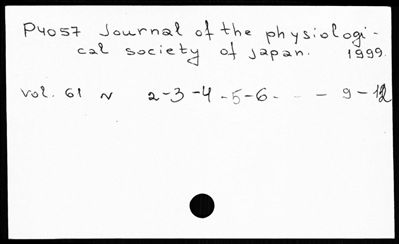 P4057 Journal of the physiologi-
cal society of Japan. 1999.
vol. 61 N 2-3-4-5-6- - - 9-12